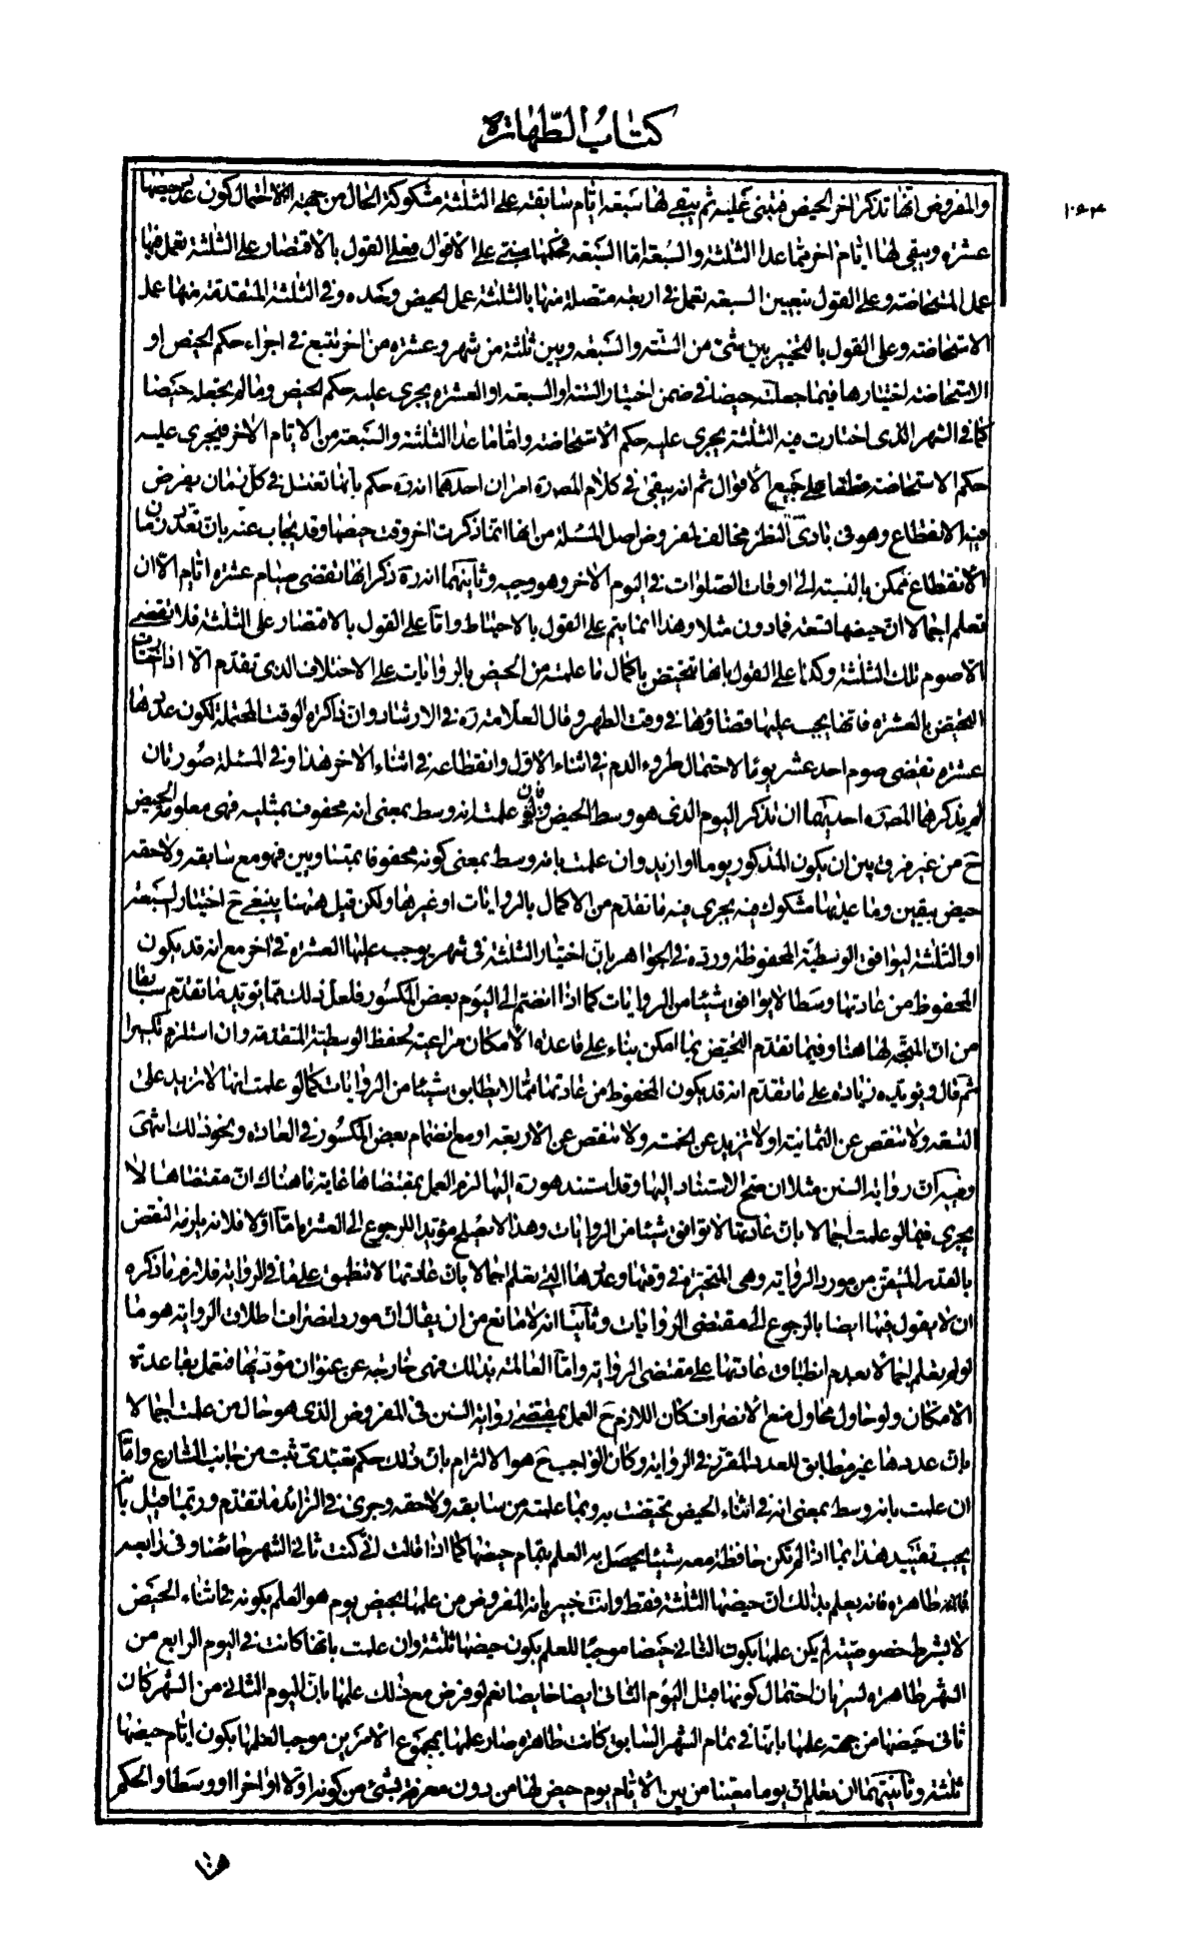 كتاب الطهارة
١٠٩٣
والمفروض انها تذكر اخر الحيض فتبنى عليه ثم يبقى لها سبعة ايام سابقة على الثلثة مشكوكة الحال من جهة احتمال كون عدد حيضها
عشرة ويبقى لها ايام اخر مما عدا الثلثة والسبعة اما السبعة فحكمها مبتن على الاقوال فعلى القول بالاقتصار على الثلثة تعمل فيها
عمل المستحاضة وعلى القول بتعيين السبعة تعمل في اربعة متصلة منها بالثلثة عمل الحيض وحده وفي الثلثة المتقدمة منها عمل
الاستحاضة وعلى القول بالتخيير بين شئ من الستة والسبعة وبين ثلثة من شهر وعشرة من اخر تتبع في اجراء حكم الحيض او
الاستحاضة اختيارها فيما جعلته حيضا في ضمن اختيار الستة او السبعة او العشرة يجرى عليه حكم الحيض وما لم يجعله حيضا
كما في الشهر الذى اختارت فيه الثلثة يجرى عليه حكم الاستحاضة واما ما عدا الثلثة والسبعة من الايام الاخر فيجرى عليه
حكم الاستحاضة مطلقا على جميع الاقوال ثم انه يبقى في كلام المصنف ره امران احدهما انه ره حكم بانها تغتسل في كل زمان يفرض
فيه الانقطاع وهو في بادى النظر مخالف لمفروض اصل المسئلة من انها انما ذكرت اخر وقت حيضها وقد يجاب عنه بان تعدد زمان
الانقطاع ممكن بالنسبة الى اوقات الصلوات في اليوم الاخر وهو وجيه وثانيهما انه ره ذكر انها تقضى صيام عشرة ايام الا ان
تعلم اجمالا ان حيضها تسعة فما دون مثلا وهذا انما يتم على القول بالاحتياط واما على القول بالاقتصار على الثلثة فلا تقضى
الا صوم تلك الثلثة وكذا على القول بانها تتحيض باكمال ما علمت من الحيض بالروايات على الاختلاف الذى تقدم الا اذا اختارت
التحيض بالعشرة فانها يجب عليها قضاؤها في وقت الطهر وقال العلامة ره في الارشاد وان ذاكرة الوقت المحتملة لكون عددها
عشرة تقضى صوم احد عشر يوما لاحتمال طروء الدم في اثناء الاول وانقطاعه في اثناء الاخر هذا وفي المسئلة صورتان
لم يذكرهما المصنف ره احديهما ان تذكر اليوم الذى هو وسط الحيض فان علمت انه وسط بمعنى انه محفوف بمثليه فهى معلومة الحيض
ح من غير فرق بين ان يكون المذكور يوما او ازيد وان علمت بانه وسط بمعنى كونه محفوفا بمتساويين فهو مع سابقه ولاحقه
حيض بيقين وما عداهما مشكوك فيه يجرى فيه ما تقدم من الاكمال بالروايات او غيرها ولكن قيل ههنا ينبغى ح اختيار السبعة
او الثلثة ليوافق الوسطية المحفوظة ورده في الجواهر بان اختيار الثلثة في شهر يوجب عليها العشرة في اخر مع انه قد يكون
المحفوظ من عادتها وسطا لا يوافق شيئا من الروايات كما اذا انضم الى اليوم بعض المكسور فلعل ذلك مما يؤيد ما تقدم سابقا
من ان المتجه لها هنا وفيما تقدم التحيض بما امكن بناء على قاعدة الامكان مراعية لحفظ الوسطية المتقدمة وان استلزم تكسيرا
ثم قال ويؤيده زيادة على ما تقدم انه قد يكون المحفوظ من عادتها مما لا يطابق شيئا من الروايات كما لو علمت انها لا تزيد على
التسعة ولا تنقص عن الثمانية او لا تزيد عن الخمسة ولا تنقص عن الاربعة او مع انضمام بعض المكسور في العادة ونحو ذلك انتهى
وفيه ان رواية السنن مثلا ان صح الاستناد اليها وقد استند هو ره اليها لزم العمل بمقتضاها غاية ما هناك ان مقتضاها لا
يجرى فيما لو علمت اجمالا بان عادتها لا توافق شيئا من الروايات وهذا لا يصلح مؤيدا للرجوع الى العشرة اما اولا فلانه يلزمه النقض
بالقدر المتيقن من مورد الرواية وهى المتحيرة في وقتها وعددها التى تعلم اجمالا بان عادتها لا تنطبق على ما في الرواية فلازم ما ذكره
ان لا يقول فيها ايضا بالرجوع الى مقتضى الروايات وثانيا انه لا مانع من ان يقال ان مورد انصراف اطلاق الرواية هو ما
لو لم يعلم اجمالا بعدم انطباق عادتها على مقتضى الرواية واما العالمة بذلك فهى خارجة عن عنوان مؤديها فتعمل بقاعدة
الامكان ولو حاول محاول منع الانصراف كان اللازم ح العمل بمقتضى رواية السنن في المفروض الذى هو حال من علمت اجمالا
بان عددها غير مطابق للعدد المقرر في الرواية وكان الواجب ح هو الالتزام بان ذلك حكم تعبدى ثبت من جانب الشارع واما
ان علمت بانه وسط بمعنى انه في اثناء الحيض تحيضت به وبما علمته من سابقه ولاحقه وجرى في الزائد ما تقدم وربما قيل بانه
يجب تقييد هذا بما اذا لم تكن حافظة معه شيئا يحصل به العلم بتمام حيضها كما اذا قالت انى كنت ثانى الشهر حائضا وفي رابعه
طاهرة فانه يعلم بذلك ان حيضها الثلثة فقط وانت خبير بانه المفروض من علمها بحيض يوم هو العلم بكونه في اثناء الحيض
لا بشرط خصوصيته لم يكن علمها بكون الثانى حيضا موجبا للعلم بكون حيضها ثلثة وان علمت بانها كانت في اليوم الرابع من
الشهر طاهرة لسريان احتمال كونها قبل اليوم الثانى ايضا حايضا نعم لو فرض مع ذلك علمها بان اليوم الثانى من الشهر كان
ثانى حيضها من جهة علمها بانها في تمام الشهر السابق كانت طاهرة صار علمها بمجموع الامرين موجبا لعلمها بكون ايام حيضها
ثلثة وثانيتهما ان تعلم ان يوما معينا من بين الايام يوم حيض لها من دون معرفة بشئ من كونه اولا او اخرا او وسطا والحكم